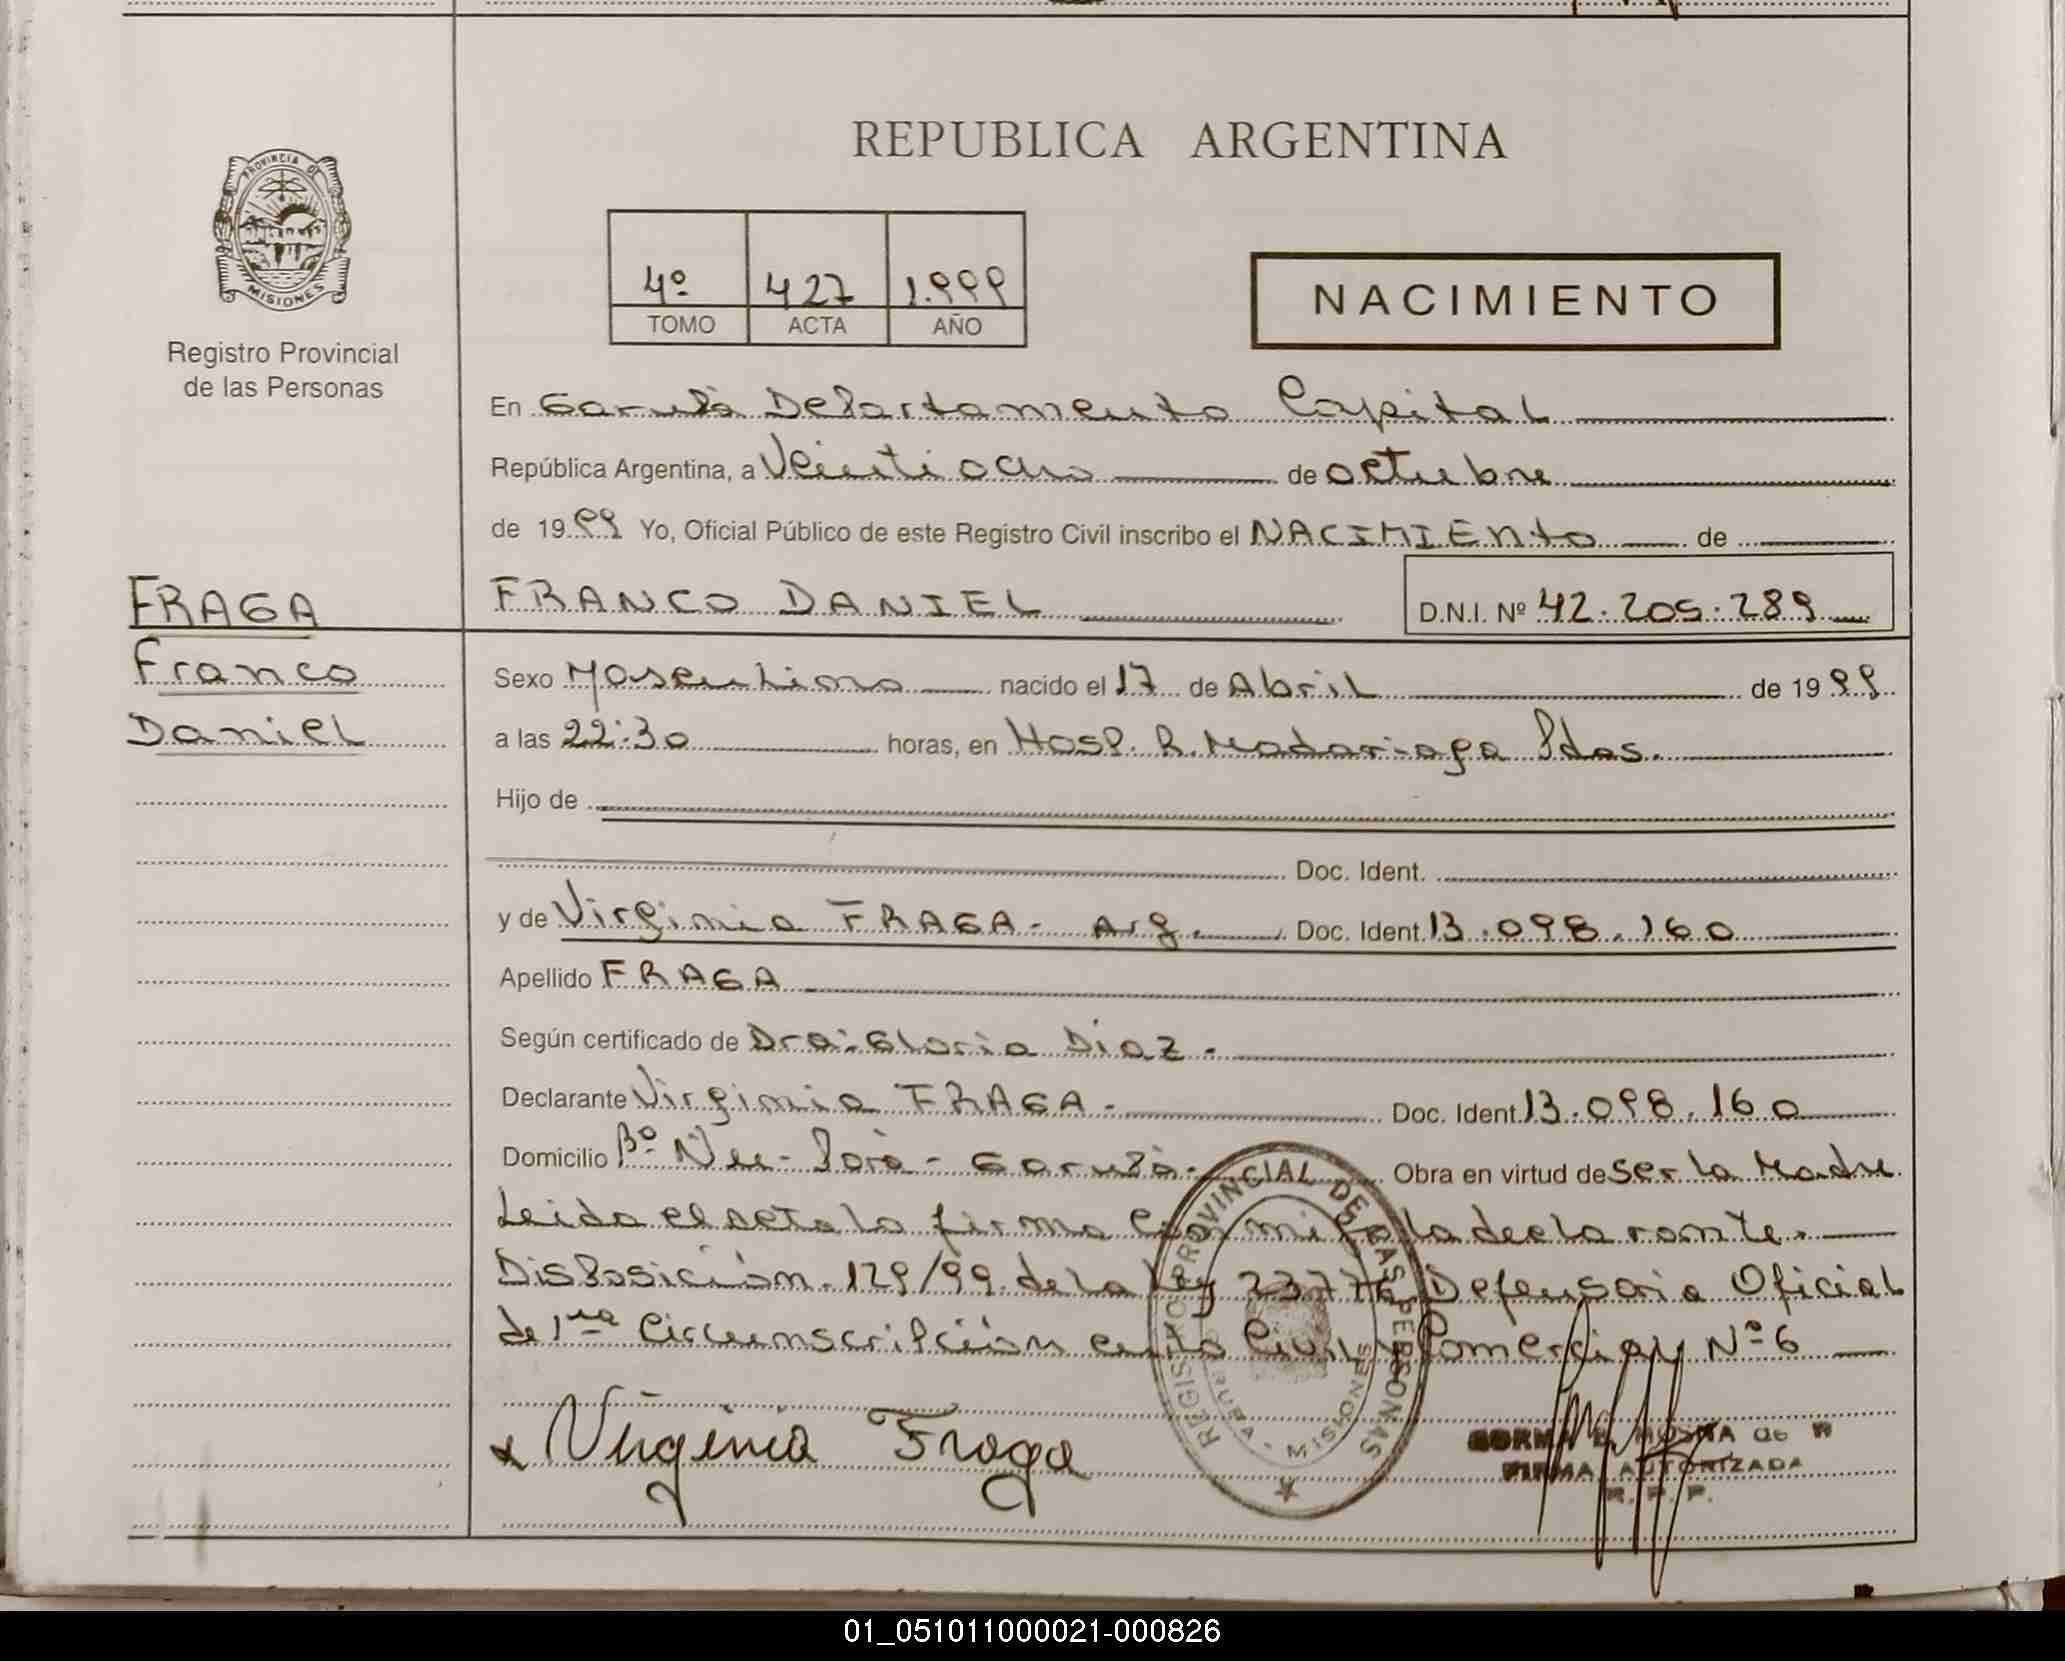 PROVINCIA DE
MISIONES
Registro Provincial
de las Personas
REPUBLICA ARGENTINA
4º 427 1.999
TOMO ACTA AÑO
NACIMIENTO
En Garupá Departamento Capital
República Argentina, a Veintiocho de octubre
de 1999 Yo, Oficial Público de este Registro Civil inscribo el NACIMIENto de
FRAGA
Franco
Daniel
FRANCO DANIEL D.N.I. Nº 42.205.289
Sexo Masculino nacido el 17 de Abril de 1999
a las 22:30 horas, en Hosp. R. Madariaga Pdas.
Hijo de
Doc. Ident.
y de Virginia FRAGA - Arg. Doc. Ident. 13.098.160
Apellido FRAGA
Según certificado de Dra: Gloria Diaz.
Declarante Virginia FRAGA. Doc. Ident. 13.098.160
Domicilio Bº Ñu-Porá - Garupá. Obra en virtud de ser la Madre
Leida el acta la firma Conmigo la declarante.
Disposición 129/99 de la Ley 23776 Defensoria Oficial
de 1ra Circunscripción en lo Civil y Comercial Nº 6
Virginia Fraga
REGISTRO PROVINCIAL DE LAS PERSONAS
MISIONES
FIRMA AUTORIZADA
R. P. P.
01_051011000021-000826